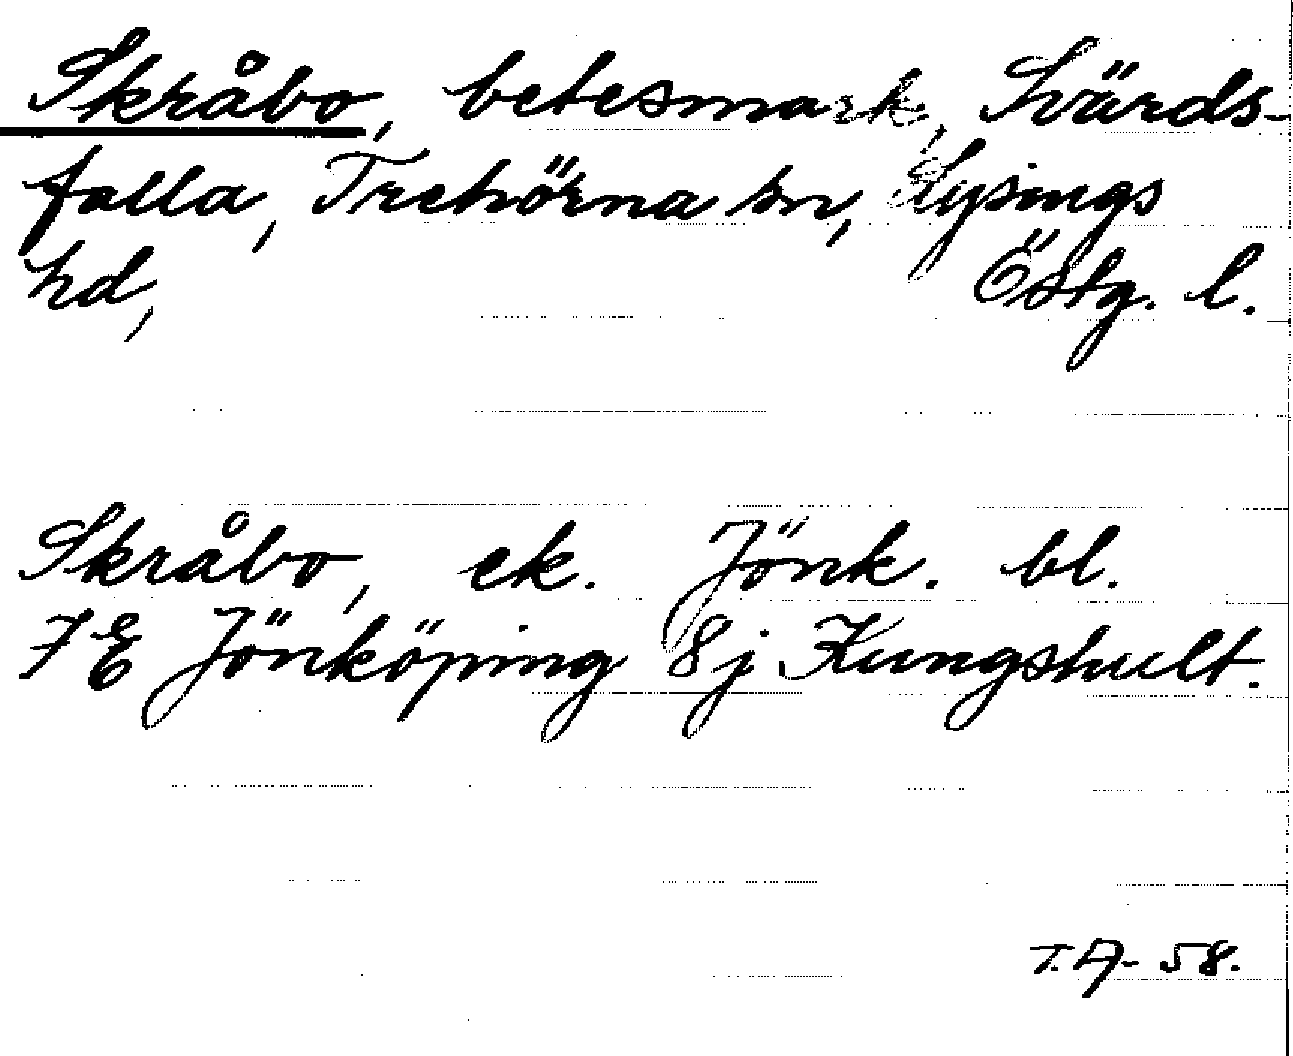 Skråbo, betesmark, Svärds-
falla, Trehörna sn, Lysings
hd, Östg. l.
Skråbo, ek. Jönk. bl.
7E Jönköping 8j Kungshult.
T.A- 58.